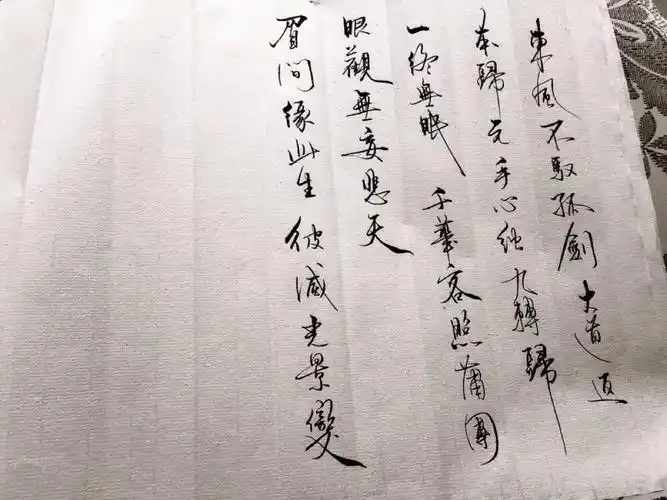 東風不馭孤劍 大道返
本歸元手心純九轉歸
一終無眠 千華客照蒲團
眼觀無妄悲天
眉間緣此生 彼滅光景變